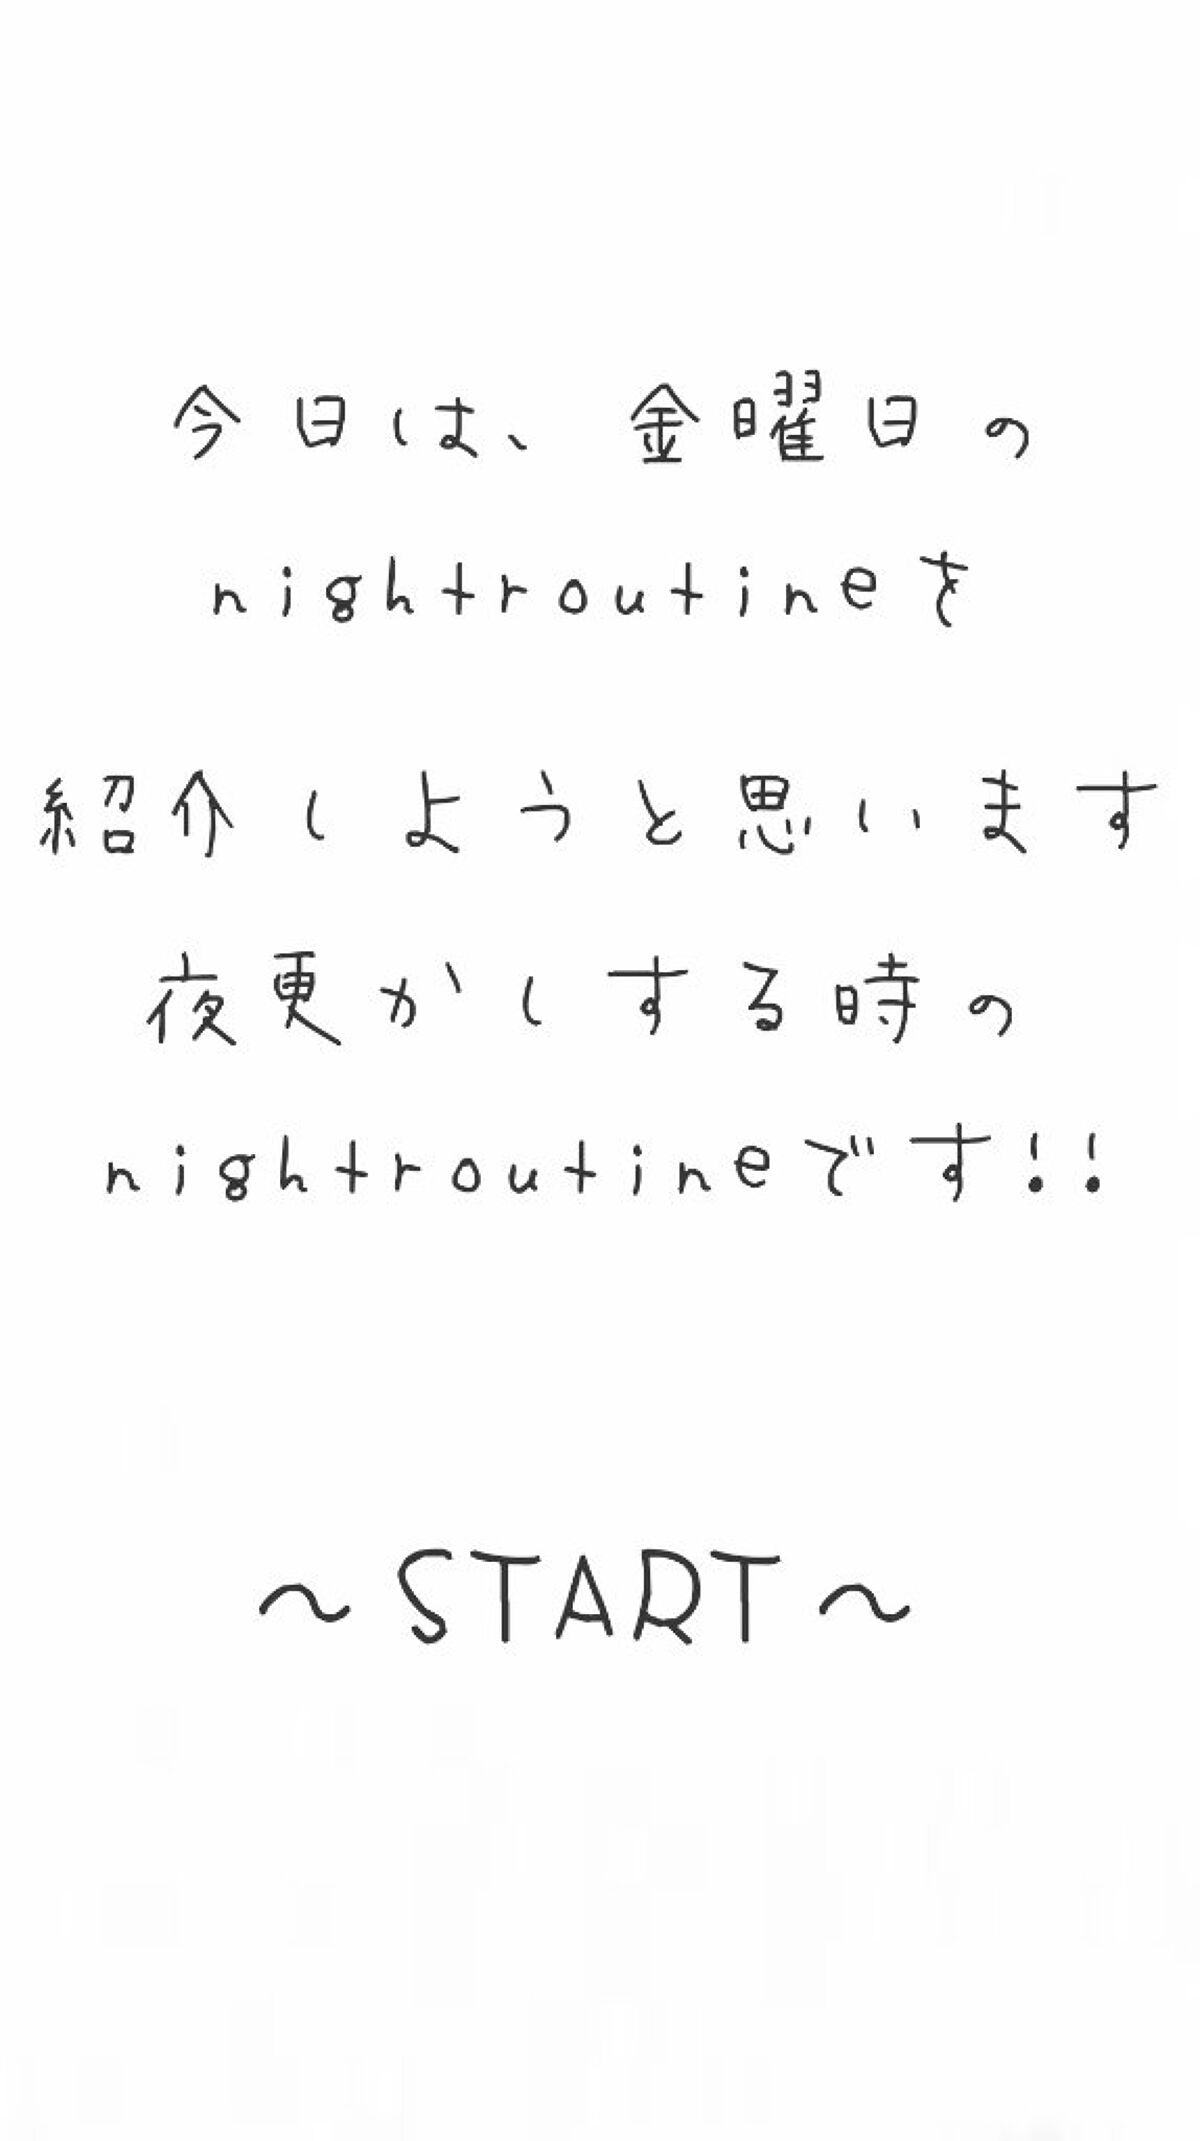 今日は、金曜日の
nightroutineを
紹介しようと思います
夜更かしする時の
nightroutineです!!
〜START〜